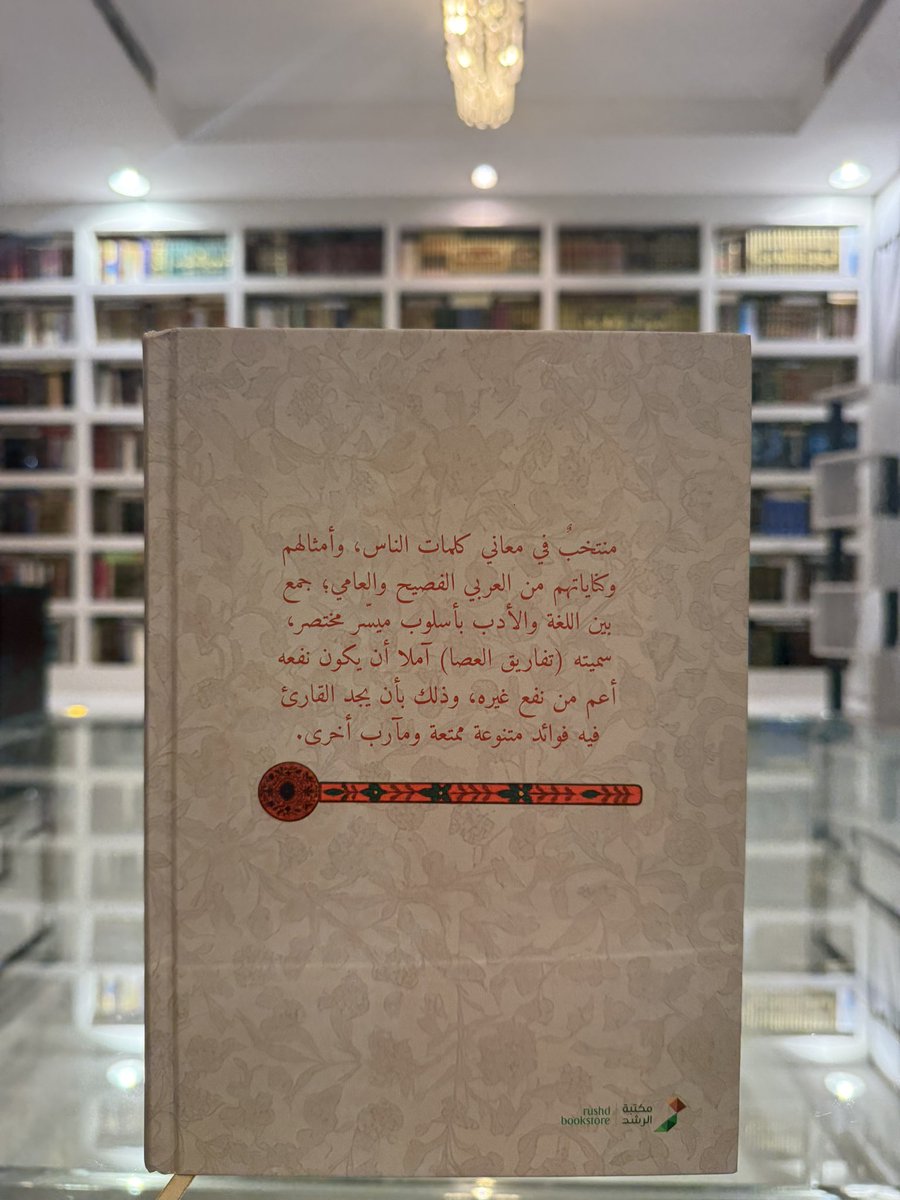 منتخبٌ في معاني كلمات الناس، وأمثالهم
وكناياتهم من العربي الفصيح والعامي؛ جمع
بين اللغة والأدب بأسلوب ميسّر مختصر،
سميته (تفاريق العصا) آملا أن يكون نفعه
أعم من نفع غيره، وذلك بأن يجد القارئ
فيه فوائد متنوعة ممتعة ومآرب أخرى.
مكتبة
الرشد
rushd
bookstore